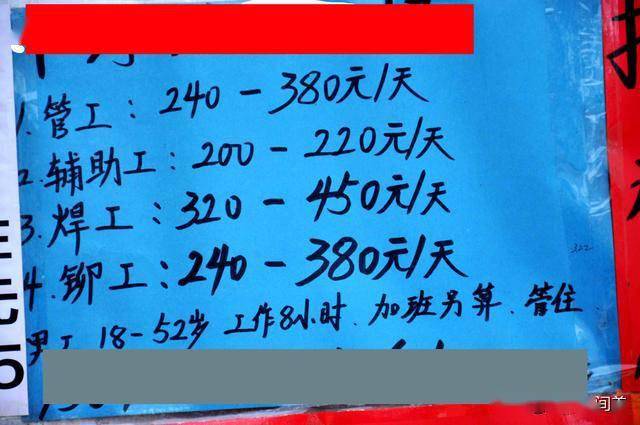 1. 管工: 240 - 380元/天
2. 辅助工: 200 - 220元/天
3. 焊工: 320 - 450元/天
4. 铆工: 240 - 380元/天
男工 18-52岁 工作8小时. 加班另算. 管住